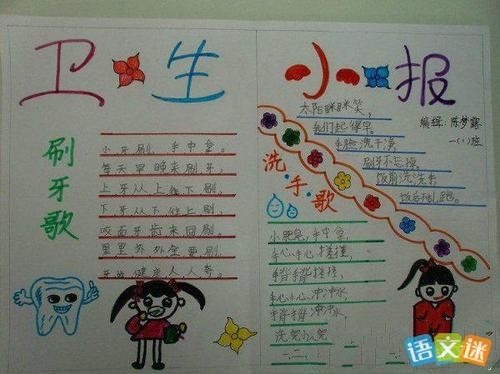 卫生
小报
刷牙歌
小牙刷,手中拿。
每天早晚来刷牙,
上牙从上往下刷,
下牙从下往上刷,
咬面牙齿来回刷,
里里外外全要刷,
牙齿健康人人夸。
太阳眯眯笑,
我们起得早,
手脸洗干净,
刷牙不忘掉,
饭前洗洗手,
饭后不乱跑。
编辑:陈梦露
一(1)班
洗手歌
小肥皂,手中拿,
手心手心搓搓搓,
手背手背搓搓,
手心手心冲冲水,
手背手背冲冲水,
语文迷